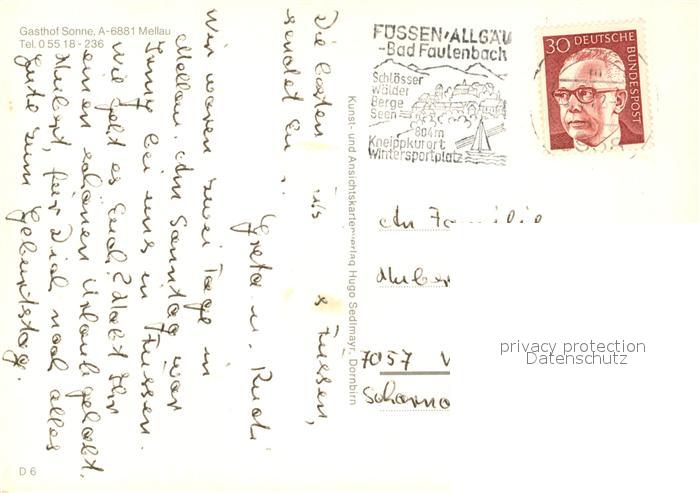 Gasthof Sonne, A-6881 Mellau
Tel. 0 55 18 - 236
Die besten aus Füssen,
sendet Eu
Greta u. Rudi
Wir waren zwei Tage in
Mellau. Am Sonntag war
bei uns in Füssen.
Wie geht es Euch? Habt Ihr
einen schönen Urlaub gehabt.
Hubert, für Dich noch alles
Gute zum Geburtstag.
D 6
Kunst- und Ansichtskartenverlag Hugo Sedlmayr, Dornbirn
FÜSSEN/ALLGÄU
-Bad Faulenbach
Schlösser
Wälder
Berge
Seen
804m
Kneippkurort
Wintersportplatz
30 DEUTSCHE
BUNDESPOST
An Familie
Huber
7057 W
privacy protection
Datenschutz